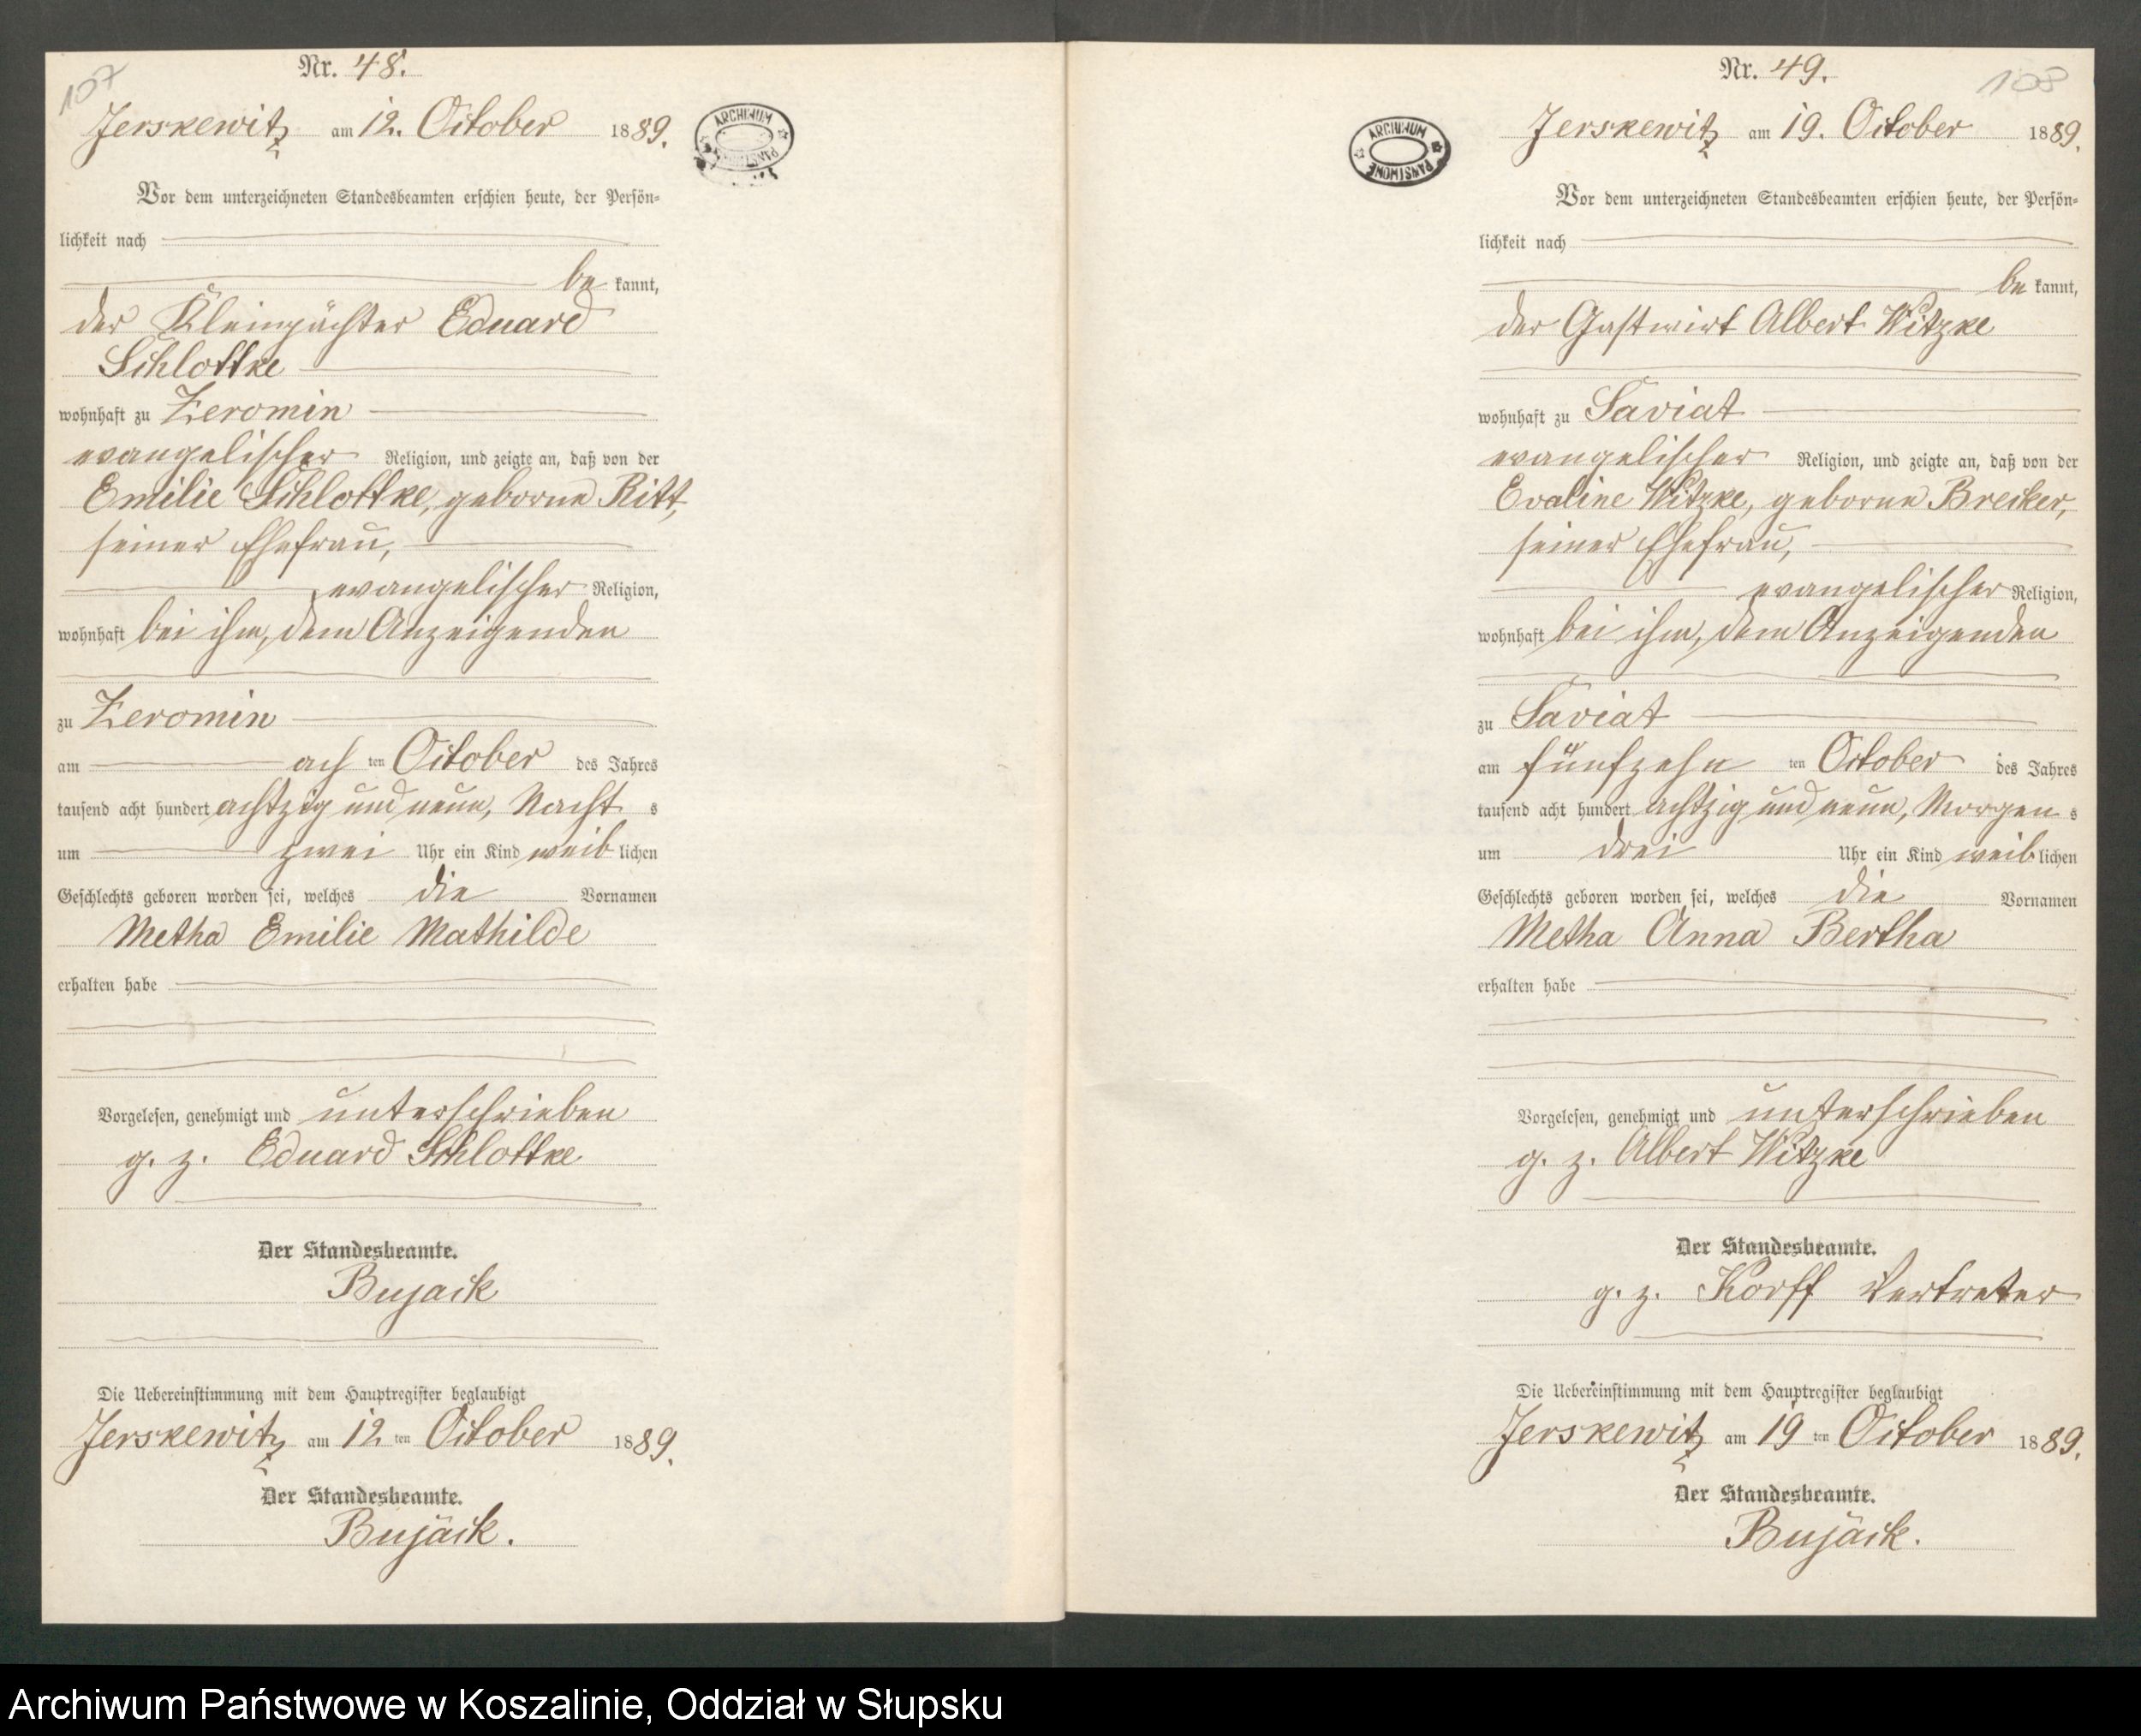 107
Nr. 48.
Jerskewitz am 12. October 1889.
ARCHIWUM PAŃSTWOWE
Vor dem unterzeichneten Standesbeamten erschien heute, der Persön-
lichkeit nach
be kannt,
der Kleinpächter Eduard
Schlottke
wohnhaft zu Zeromin
evangelischer Religion, und zeigte an, daß von der
Emilie Schlottke, geborne Ritt,
seiner Ehefrau,
evangelischer Religion,
wohnhaft bei ihm, dem Anzeigenden
zu Zeromin
am ach ten October des Jahres
tausend acht hundert achtzig und neun, Nacht s
um zwei Uhr ein Kind weib lichen
Geschlechts geboren worden sei, welches die Vornamen
Metha Emilie Mathilde
erhalten habe
Vorgelesen, genehmigt und unterschrieben
g. z. Eduard Schlottke
Der Standesbeamte.
Bujack
Die Uebereinstimmung mit dem Hauptregister beglaubigt
Jerskewitz am 12 ten October 1889.
Der Standesbeamte.
Bujack.
108
Nr. 49.
Jerskewitz am 19. October 1889.
ARCHIWUM PAŃSTWOWE
Vor dem unterzeichneten Standesbeamten erschien heute, der Persön-
lichkeit nach
be kannt,
der Gastwirt Albert Witzke
wohnhaft zu Saviat
evangelischer Religion, und zeigte an, daß von der
Evaline Witzke, geborne Brecker,
seiner Ehefrau,
evangelischer Religion,
wohnhaft bei ihm, dem Anzeigenden
zu Saviat
am fünfzehn ten October des Jahres
tausend acht hundert achtzig und neun, Morgen s
um drei Uhr ein Kind weib lichen
Geschlechts geboren worden sei, welches die Vornamen
Metha Anna Bertha
erhalten habe
Vorgelesen, genehmigt und unterschrieben
g. z. Albert Witzke
Der Standesbeamte.
g. z. Korff Vertreter
Die Uebereinstimmung mit dem Hauptregister beglaubigt
Jerskewitz am 19 ten October 1889.
Der Standesbeamte.
Bujack.
Archiwum Państwowe w Koszalinie, Oddział w Słupsku